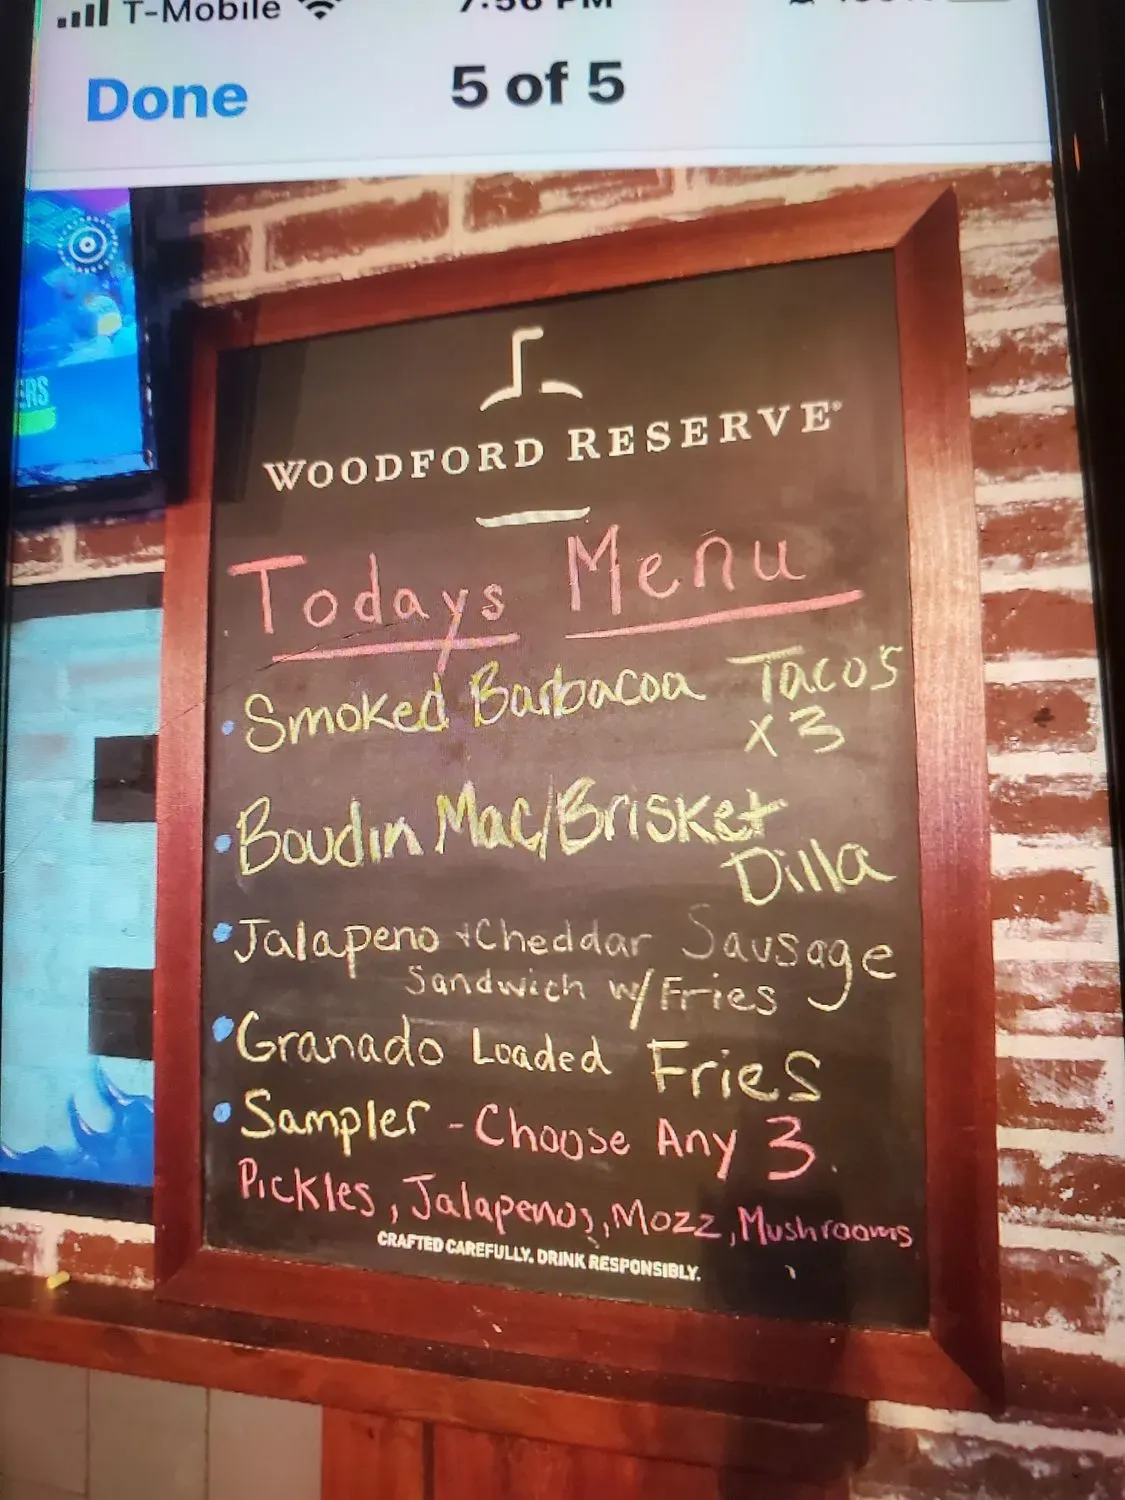 T-Mobile
Done
5 of 5
ERS
WOODFORD RESERVE®
Todays Menu
• Smoked Barbacoa Taco's
x 3
• Boudin Mac/Brisket
Dilla
• Jalapeno + Cheddar Sausage
Sandwich w/ Fries
• Granado Loaded Fries
• Sampler - Choose Any 3
Pickles, Jalapenos, Mozz, Mushrooms
CRAFTED CAREFULLY. DRINK RESPONSIBLY.